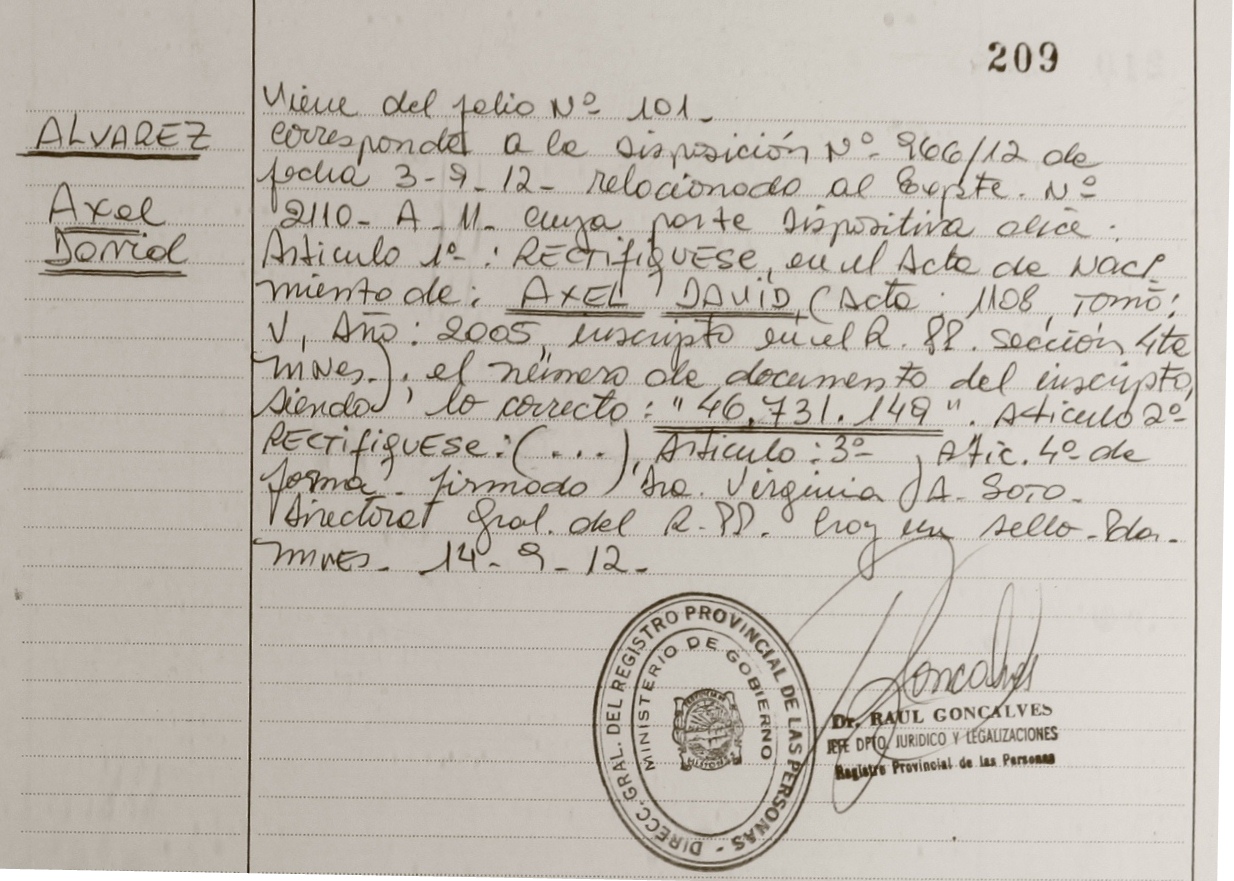 209
ALVAREZ
Axel
David
Viene del folio Nº 101.
corresponde a la disposición Nº 966/12 de
fecha 3-9-12- relacionado al Expte. Nº
2110- A - 11- cuya parte dispositiva dice:
Articulo 1º: RECTIFIQUESE, en el Acta de Naci
miento de: AXEL DAVID, (Acta: 1108, Tomo:
V, Año: 2005, inscripto en el R. PP. sección 4ta
Mnes.), el número de documento del inscripto,
siendo lo correcto: "46.731.149". Articulo 2º
RECTIFIQUESE: (...), Articulo: 3º, Atic. 4º de
forma. firmado Sra. Virginia A. Soto.
Directora Gral. del R.PP. hay un sello-Pdas.
Mnes. 14-9-12-
DIRECC. GRAL. DEL REGISTRO PROVINCIAL DE LAS PERSONAS -
MINISTERIO DE GOBIERNO
MISIONES
Goncalves
Dr. RAUL GONCALVES
JEFE DPTO. JURIDICO Y LEGALIZACIONES
Registro Provincial de las Personas